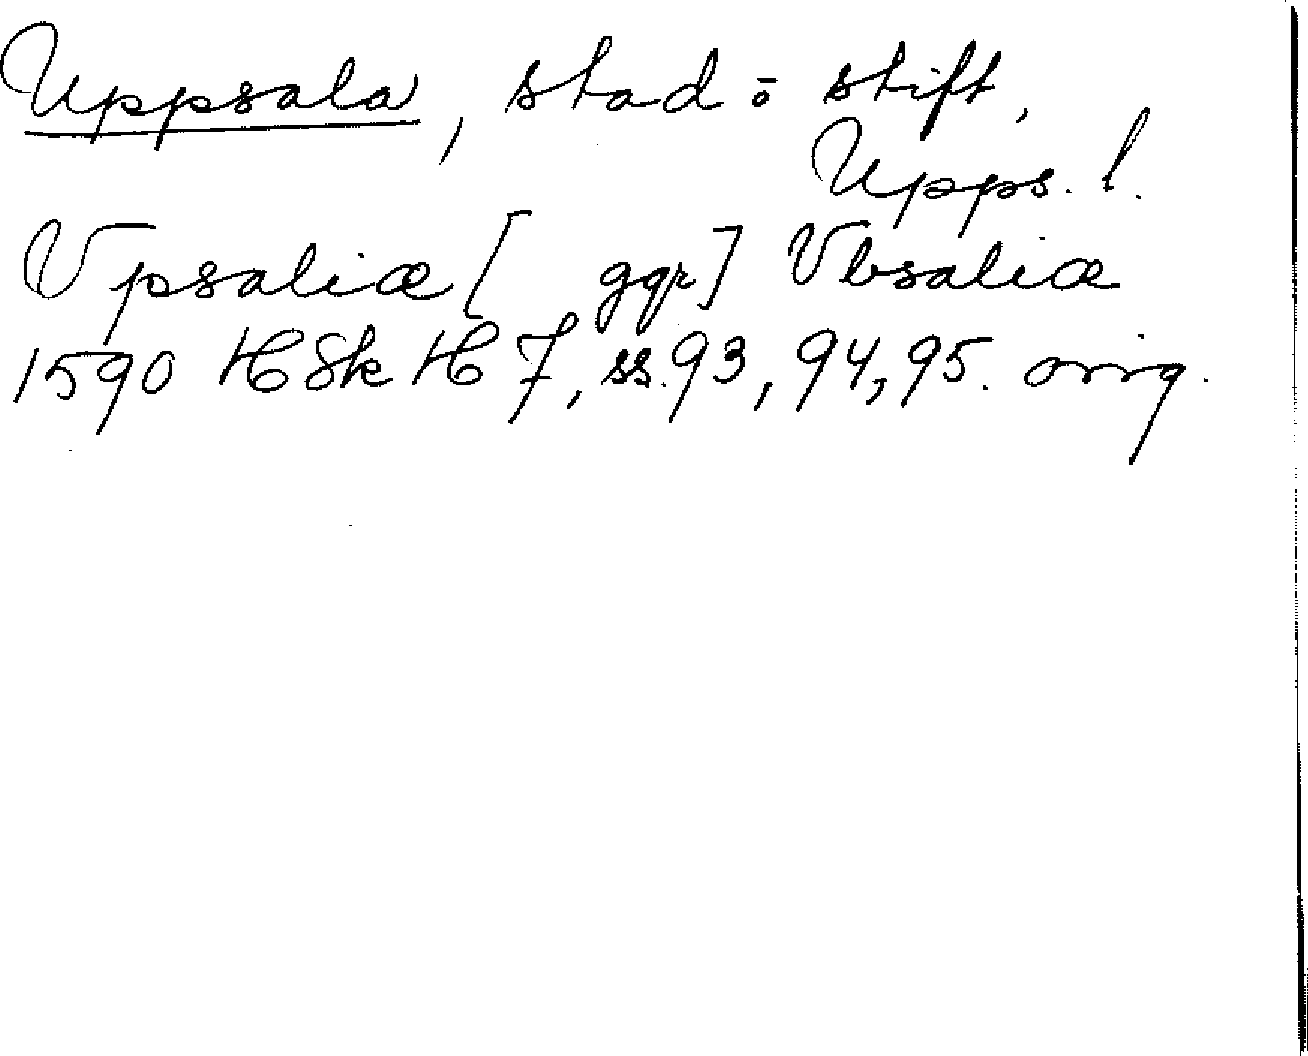 Uppsala, stad o stift,
Upps. l.
Vpsaliæ [ ggr] Vbsaliæ
1590 HSk H 7, ss. 93, 94, 95. orig.